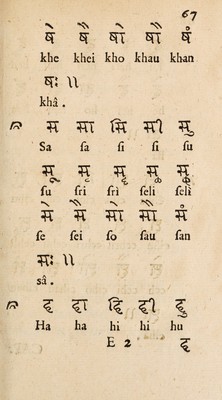 67
षे षै षो षौ षं
khe khei kho khau khan
षः ॥
khâ .
स सा सि सी सु
Sa sa si si su
सू सृ सॄ सॢ सॣ
su sri srì seli selì
से सै सो सौ सं
se sei so sau san
सः ॥
sâ .
ह हा हि ही हु
Ha ha hi hi hu
E 2 हृ